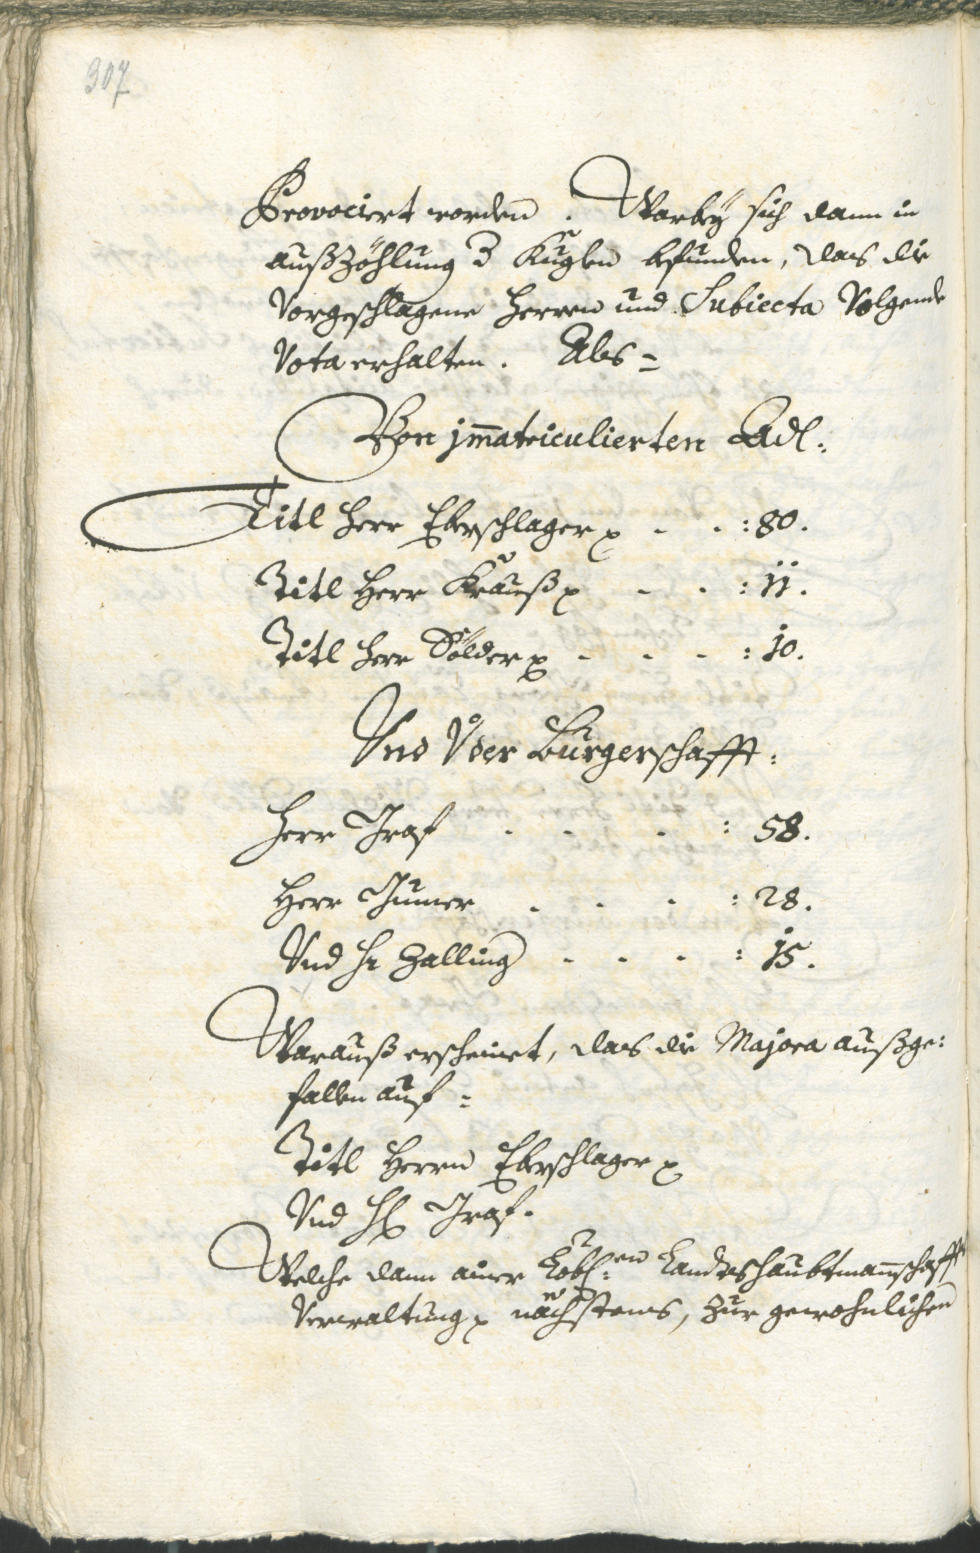 307
Provociert worden. Warbeÿ sich dann in
außzöhlung d Kuglen befunden, das die
Vorgeschlagene Herren und Subiecta Volgende
Vota erhalten. Als =
Von jm̄atriculierten Adl:
Titl Herr Eberschlager p - - : 80.
Titl Herr Krauß p - - : 11.
Titl Herr Sölder p - - - : 10.
Vnd Vo der Burgerschafft:
Herr Graf - - - : 58.
Herr Gumer - - - : 28.
Vnd Hr Zalling - - - : 15.
Warauß erscheinet, das die Majora außge:
fallen auf =
Titl Herrn Eberschlager p
Vnd H: Graf.
Welche dann ainer Löbl:en Landtshaubtmanschafft
Verwaltung p nächstens, zur gewohnlichen